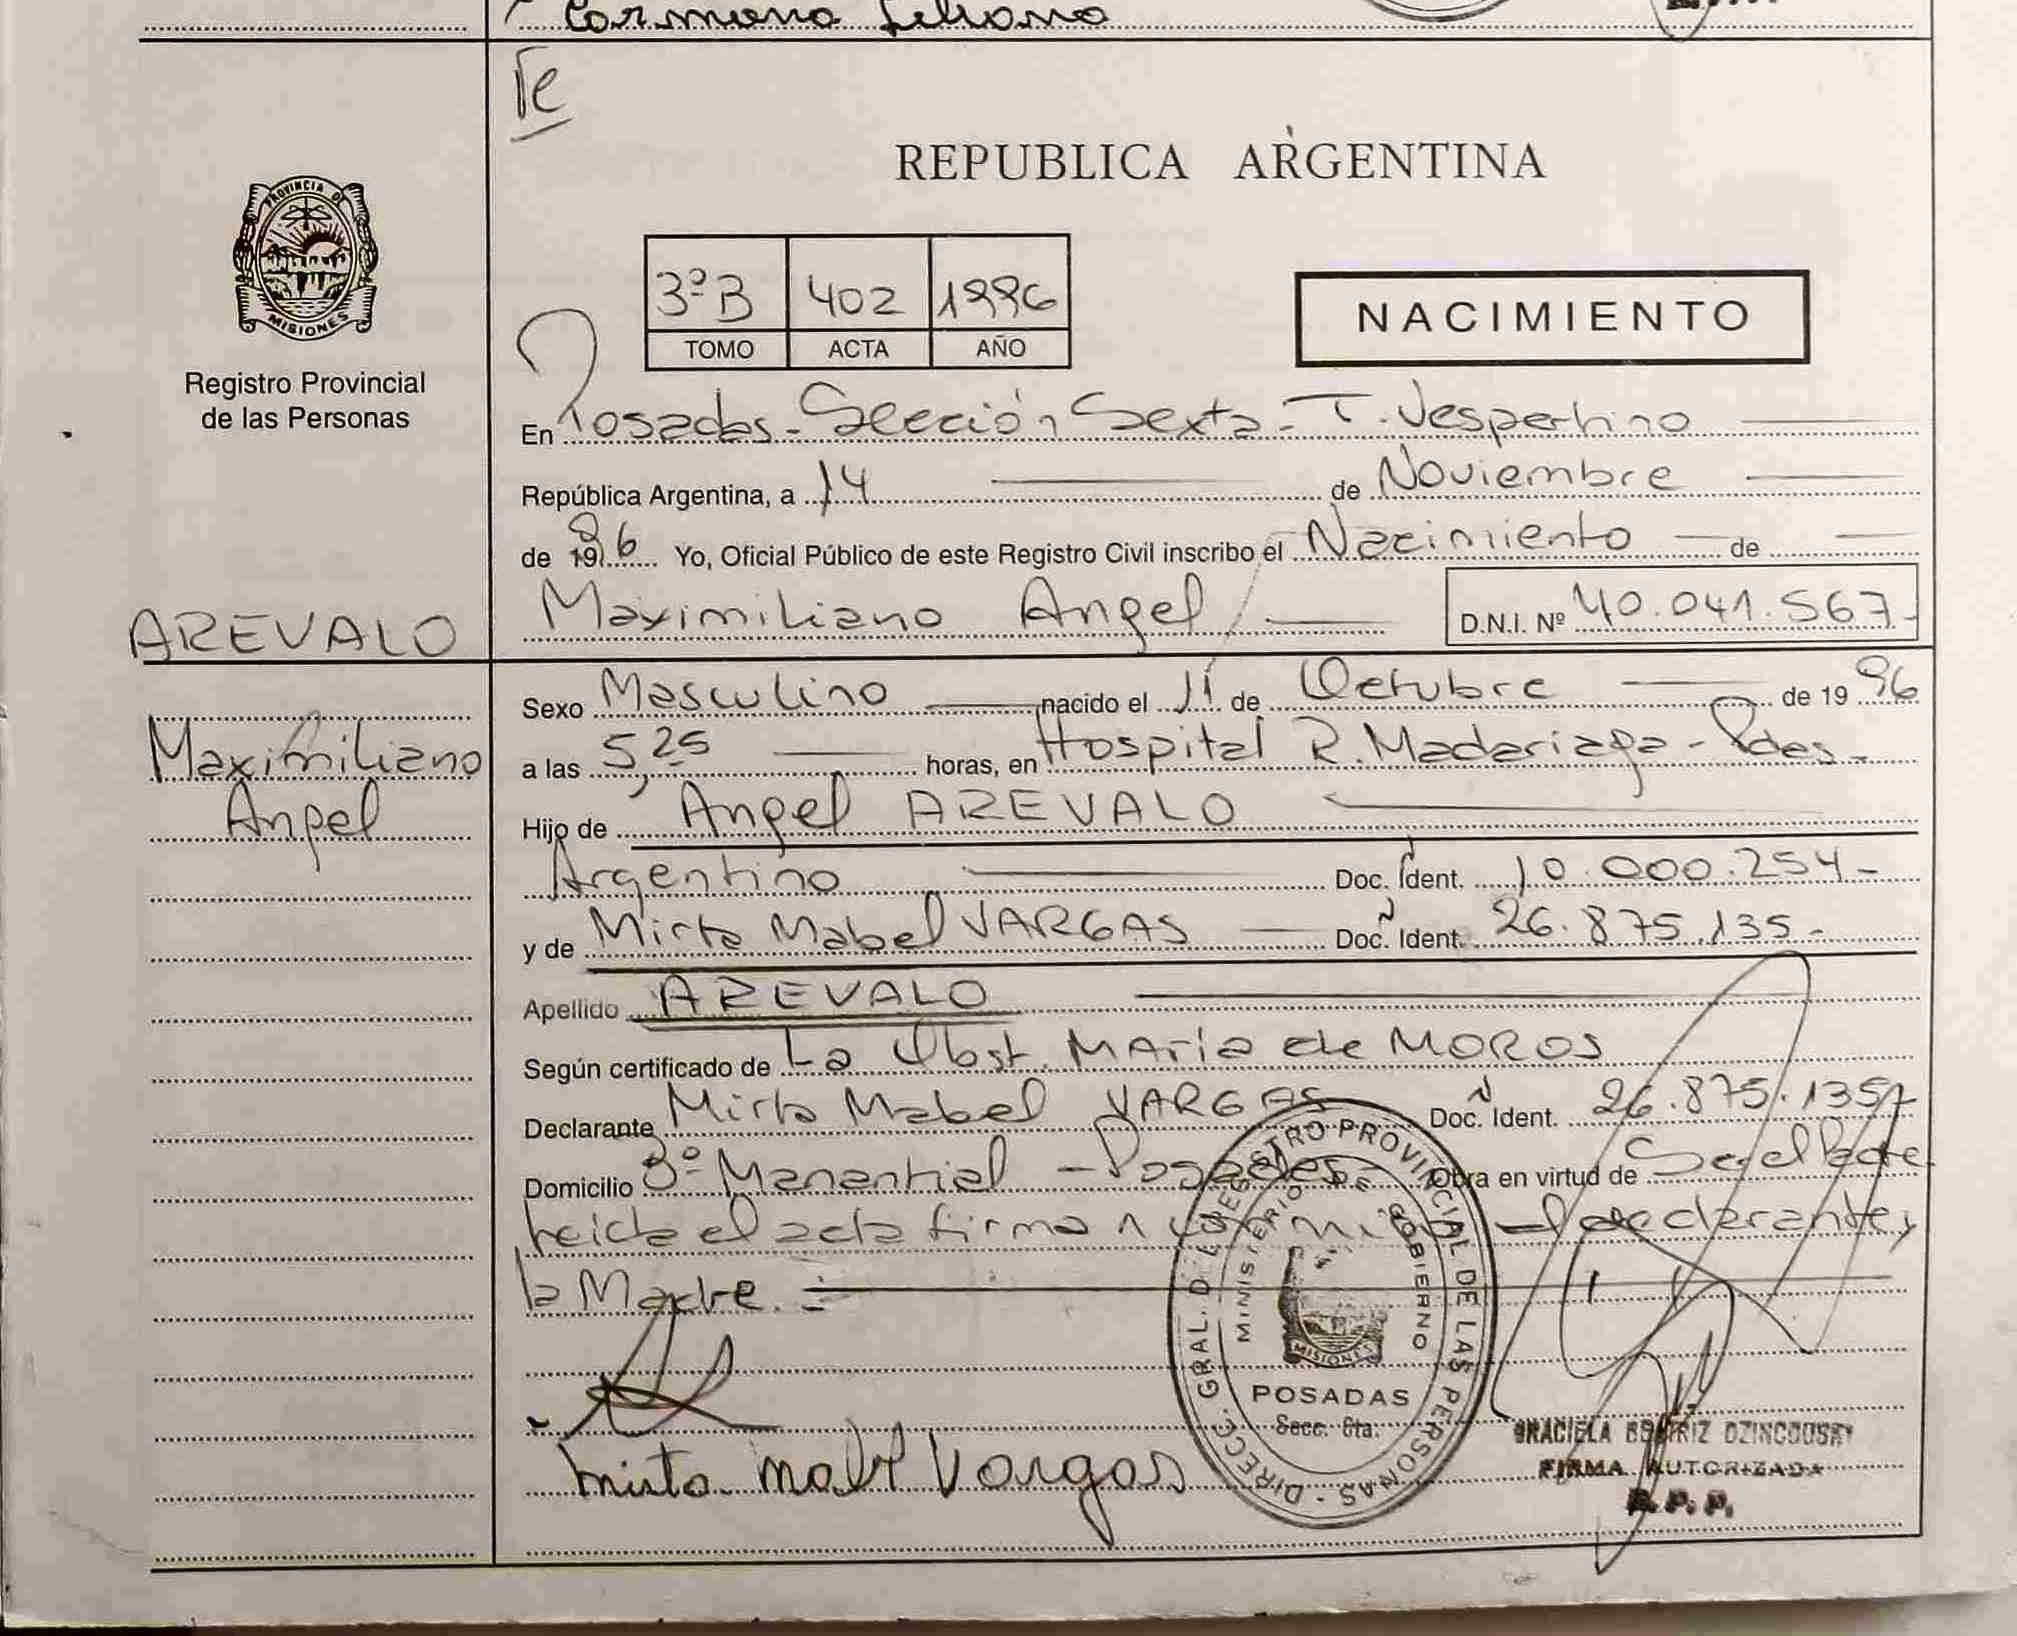 Carmona Liliana
Te
PROVINCIA DE
MISIONES
Registro Provincial
de las Personas
REPUBLICA ARGENTINA
3º B 402 1996
TOMO ACTA AÑO
NACIMIENTO
En Posadas - Sección Sexta - T. Vespertino
República Argentina, a 14 de Noviembre
de 1996 Yo, Oficial Público de este Registro Civil inscribo el Nacimiento de
Maximiliano Angel D.N.I. Nº 40.041.567-
AREVALO
Maximiliano
Angel
Sexo Masculino nacido el 11 de Octubre de 19 96
a las 5,25 horas, en Hospital R. Madariaga - Pdas -
Hijo de Angel AREVALO
Argentino Doc. Ident. 10.000.254-
y de Mirta Mabel VARGAS Doc. Ident. 26.875.135-
Apellido AREVALO
Según certificado de La Obst. MAria de MOROS
Declarante Mirta Mabel VARGAS Doc. Ident. 26.875.135
Domicilio 3º Manantial - Posadas - Obra en virtud de Ser el Padre
leida el acta firman declarante y
la Madre.
DIRECC. GRAL. DEL REGISTRO PROVINCIAL DE LAS PERSONAS
MINISTERIO DE GOBIERNO
MISIONES
POSADAS
Secc. 6ta.
Mirta Mabel Vargas
GRACIELA BEATRIZ
FIRMA AUTORIZADA
R.P.P.